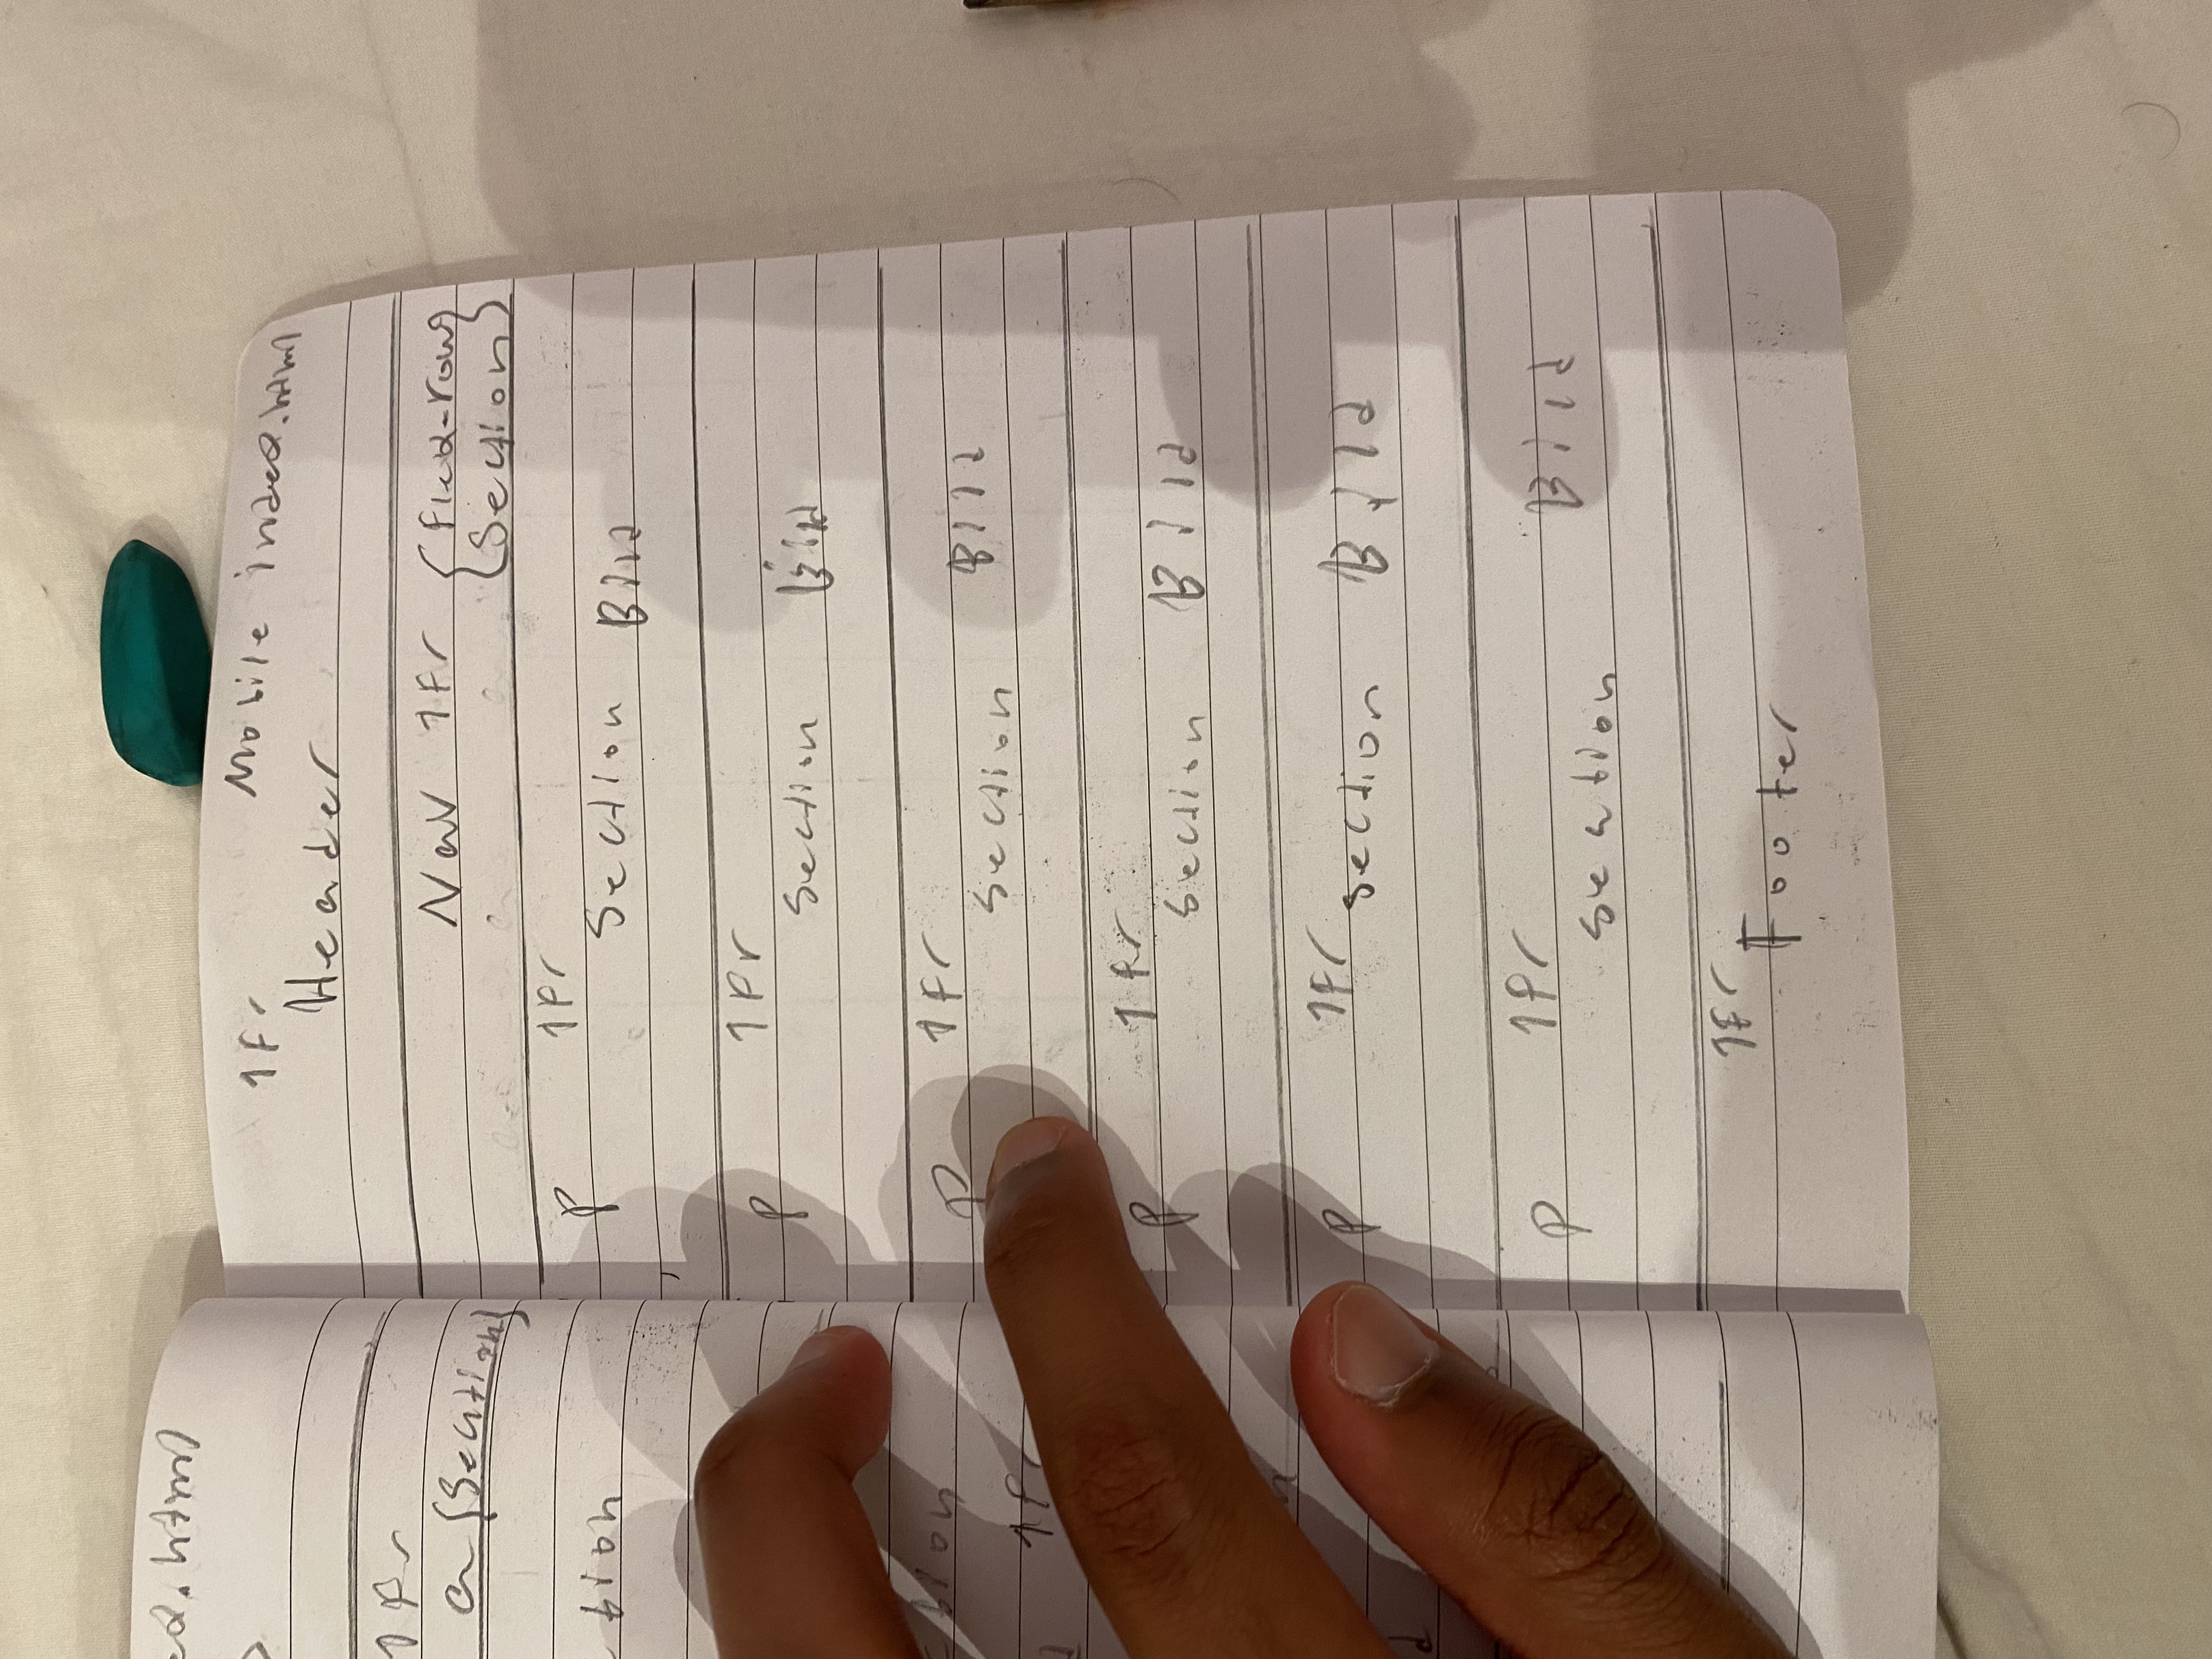 .html
1Fr
a {Section}
tion
ction
1Fr
1Fr Mobile index.html
Header
Nav 1Fr {Flex-row}
{Section}
P 1Fr
Section Bild
P 1Fr
Section Bild
P 1Fr
Section Bild
P 1Fr
Section Bild
P 1Fr
Section Bild
P 1Fr
Section Bild
1Fr
Footer